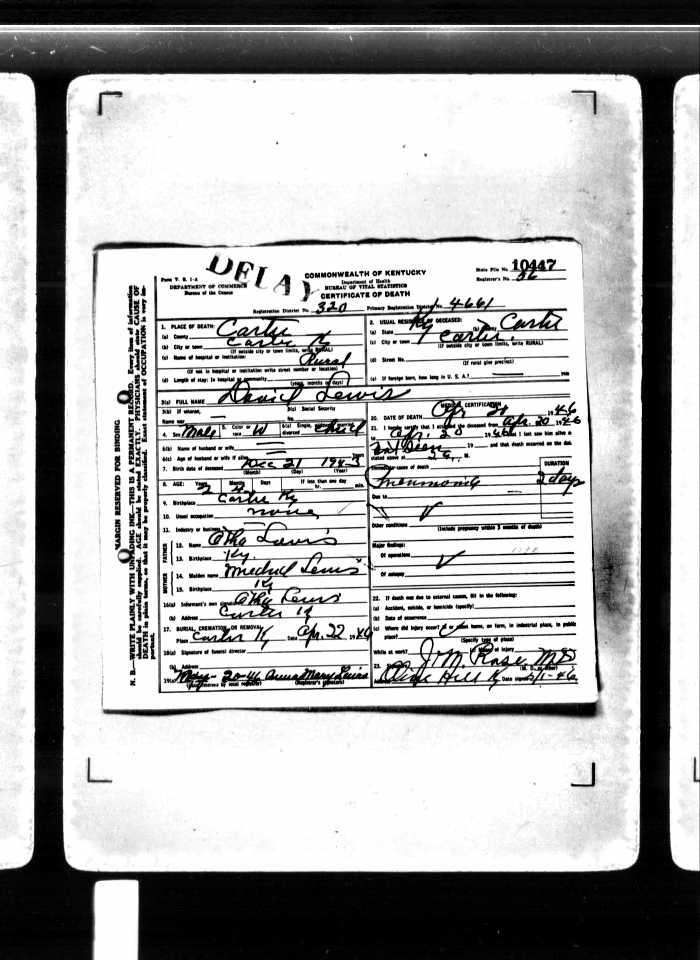 DELAY
Form V. S. 1-A
DEPARTMENT OF COMMERCE
Bureau of the Census
COMMONWEALTH OF KENTUCKY
Department of Health
BUREAU OF VITAL STATISTICS
CERTIFICATE OF DEATH
State File No. 10447
Registrar's No. 26
Registration District No. 320 Primary Registration District No. 4661
MARGIN RESERVED FOR BINDING
N. B.—WRITE PLAINLY WITH UNFADING INK—THIS IS A PERMANENT RECORD. Every item of information
should be carefully supplied. AGE should be stated EXACTLY. PHYSICIANS should state CAUSE OF
DEATH in plain terms, so that it may be properly classified. Exact statement of OCCUPATION is very im-
portant.
1. PLACE OF DEATH:
(a) County Carter
(b) City or town Carter Ky
(If outside city or town limits, write RURAL)
(c) Name of hospital or institution: Rural
(If not in hospital or institution write street number or location)
(d) Length of stay: In hospital or community
(years, months or days)
2. USUAL RESIDENCE OF DECEASED:
(a) State Ky (b) County Carter
(c) City or town Carter
(If outside city or town limits, write RURAL)
(d) Street No.
(If rural give precinct)
(e) If foreign born, how long in U. S. A.?
3(a) FULL NAME David Lewis
3(b) If veteran,
Name war
3(c) Social Security
No.
4. Sex Male 5. Color or race W 6(a) Single, widowed, married, divorced Child
6(b) Name of husband or wife
6(c) Age of husband or wife if alive Years
7. Birth date of deceased Dec 21 1943
(Month) (Day) (Year)
8. AGE: Years Months Days If less than one day
2 hr. min.
9. Birthplace Carter Ky
10. Usual occupation none
11. Industry or business
FATHER
12. Name Otha Lewis
13. Birthplace Ky.
MOTHER
14. Maiden name Lewis
15. Birthplace Ky
16(a) Informant's own signature Otha Lewis
(b) Address Carter Ky
17. BURIAL, CREMATION OR REMOVAL
Place Carter Ky Date Apr. 22 1946
18(a) Signature of funeral director
(b) Address
19(a) May-20-46 Anna Mary Lewis
(Date received by local registrar) (Registrar's signature)
MEDICAL CERTIFICATION
20. DATE OF DEATH Apr 20 1946
21. I hereby certify that I attended the deceased from Apr. 20 1946
to Apr. 20 1946 that I last saw him alive on
not seen 19 and that death occurred on the date
stated above at M.
Immediate cause of death DURATION
Pneumonia 2 days
Due to
Other conditions
(Include pregnancy within 3 months of death)
Major findings:
Of operations
Of autopsy
22. If death was due to external causes, fill in the following:
(a) Accident, suicide, or homicide (specify)
(b) Date of occurrence
(c) Where did injury occur? in or about home, on farm, in industrial place, in public
place?
(Specify type of place)
While at work? of injury
23. J. M. Rose MD
(M. D. or other)
Address Olive Hill Ky Date signed 5/1-46